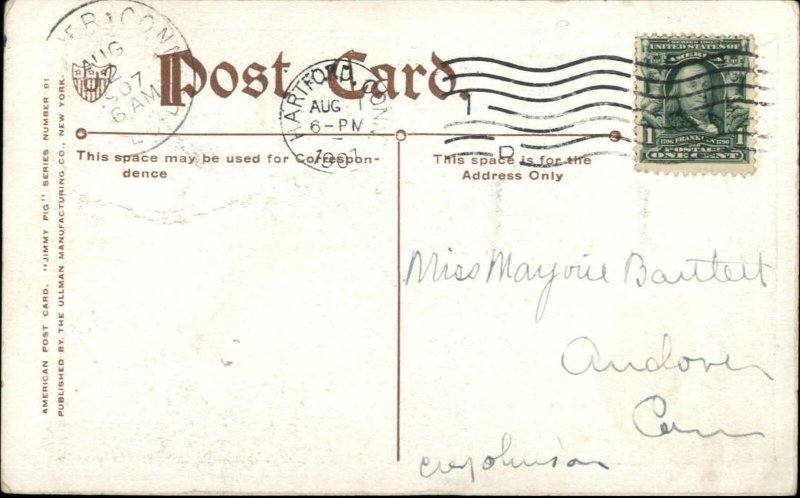 Post Card.
AUG
2
1907
6 AM
HARTFORD, CONN.
AUG 1
6-PM
1907
D
SERIES 1902
UNITED STATES OF
AMERICA
1 FRANKLIN 1
POSTAGE
ONE CENT
This space may be used for Correspon-
dence
This space is for the
Address Only
AMERICAN POST CARD. "JIMMY PIG" SERIES NUMBER 91
PUBLISHED BY THE ULLMAN MANUFACTURING CO., NEW YORK.
Miss Marjorie Bartlett
Andover
Conn
Johnson